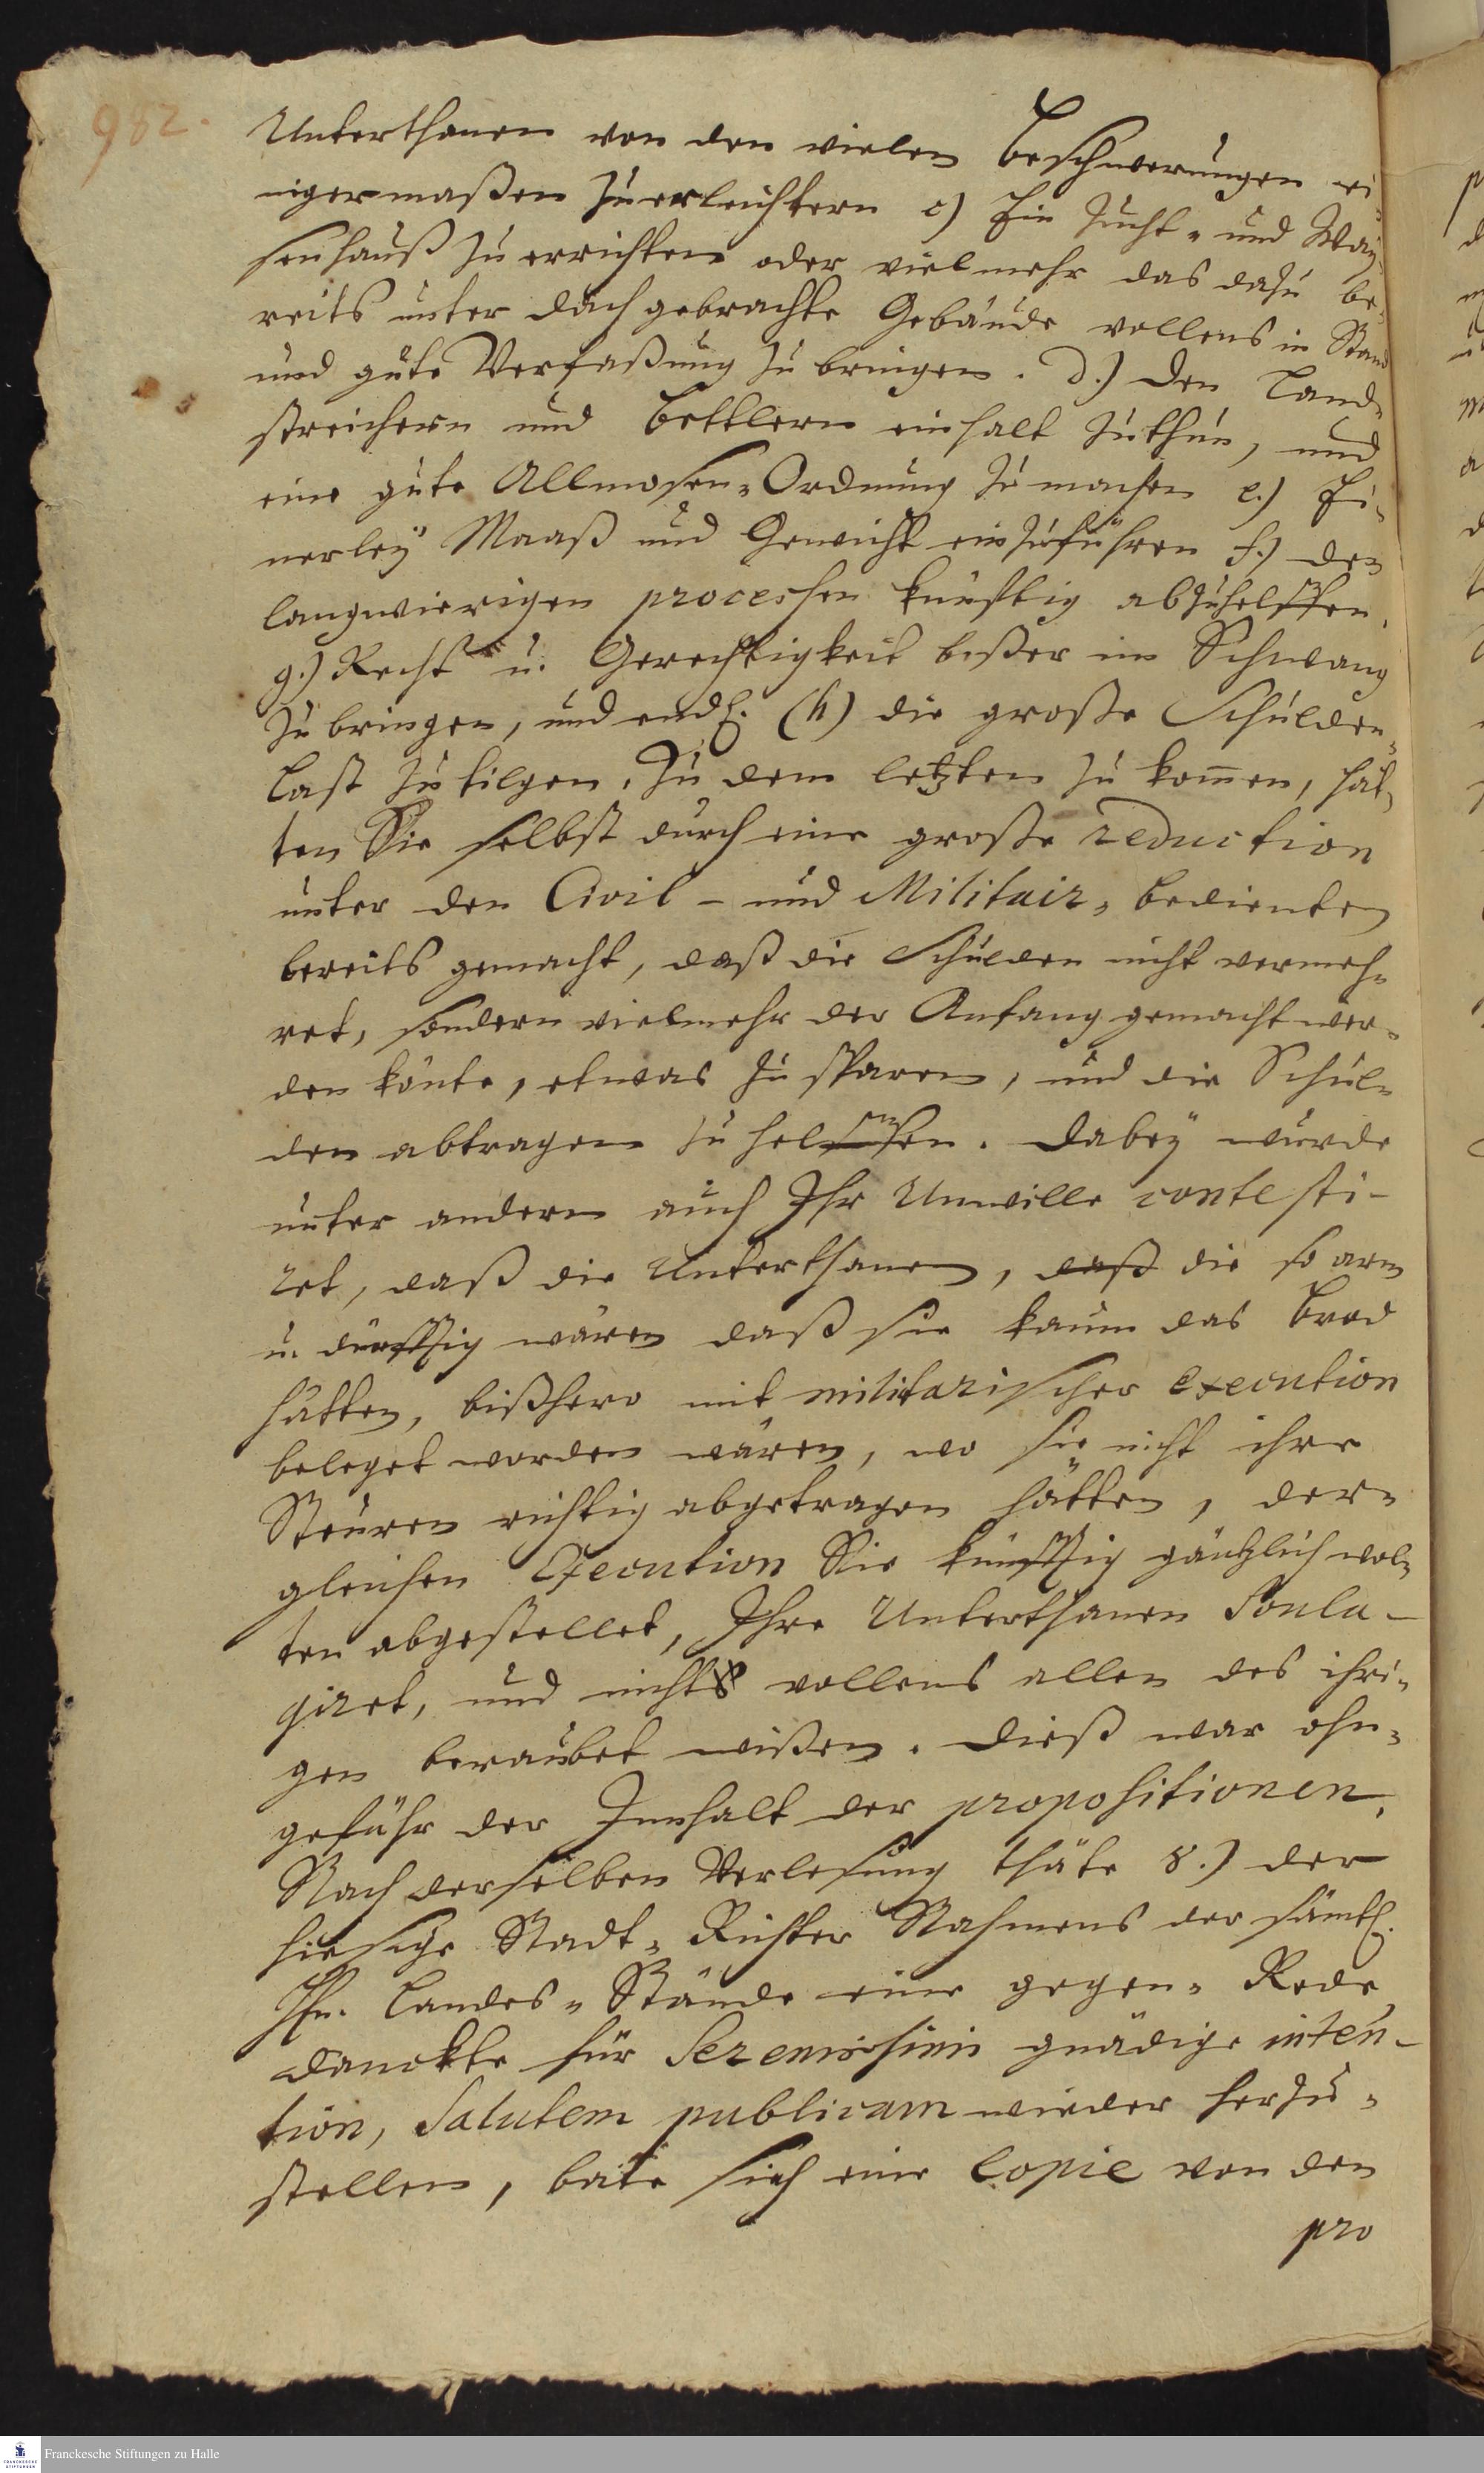 982.
Unterthanen von den vielen Beschwerungen ei-
nigermaßen zu erleichtern c) Ein Zucht- und Way-
senhauß zu errichten oder vielmehr das dazu be-
reits unter dach gebrachte Gebäude vollens in Stand
und gute Verfaßung zu bringen. d.) Den Land-
streichern und Bettlern einhalt zu thun, und
eine gute Allmosen-Ordnung zu machen e.) Ei-
nerley Maaß und Gewicht einzuführen f.) den
langwierigen processen künftig abzuhelffen,
g.) Recht u. Gerechtigkeit beßer im Schwang
zu bringen, und endl. (h) die große Schulden-
last zu tilgen. Zu dem letzten zu kom̄en, hät-
ten Sie selbst durch eine große reduction
unter den Civil- und Militair-bedienten
bereits gemacht, daß die Schulden nicht vermeh-
ret, sondern vielmehr der Anfang gemacht wer-
den könte, etwas zu sparen, und die Schul-
den abtragen zu helffen. Dabey wurde
unter andern auch Ihr Unwille contesti-
ret, daß die Unterthanen, daß die so arm
u. dürfftig wären daß sie kaum das Brod
hätten, bißhero mit militarischer execution
beleget worden wären, wo sie nicht ihre
Steuren richtig abgetragen hätten, der-
gleichen Execution Sie künfftig gäntzlich wol-
ten abgestellet, Ihre Unterthanen Soula-
giret, und nicht vollens allen des ihri-
gen beraubet wißen. Dieß war ohn-
gefähr der Innhalt der propositionen.
Nach derselben Verlesung thäte 8.) der
hiesige Stadt-Richter Nahmens der sämtl.
Hn. Landes-Stände eine gegen-Rede,
danckte für Serenissimi gnädige inten-
tion, Salutem publicam wieder herzu-
stellen, bate sich eine Copie von den
pro
Franckesche Stiftungen zu Halle